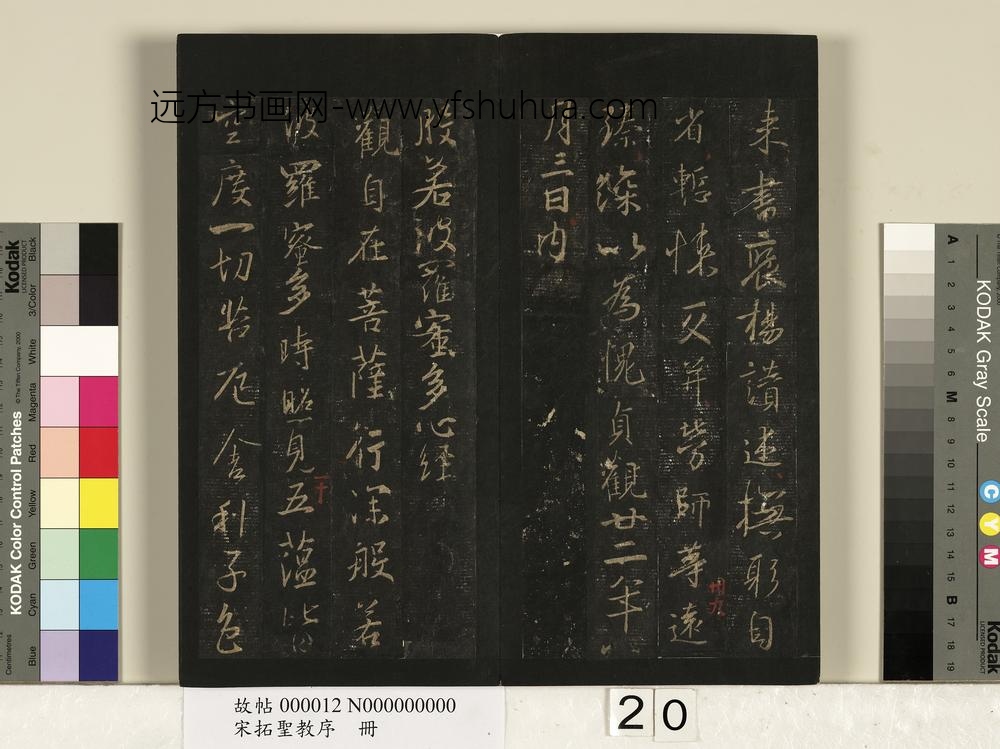 远方书画网-www.yfshuhua.com
来書褒揚讃述撫躬自
省慙悚交并勞師等遠
臻深以為愧貞觀廿二年八
月三日内
般若波羅蜜多心經
觀自在菩薩行深般若
波羅蜜多時照見五蘊皆
空度一切苦厄舍利子色
卅九
四十
故帖 000012 N000000000
宋拓聖教序 冊
20
Kodak
LICENSED PRODUCT
Black
3/Color
White
Magenta
Red
Yellow
Green
Cyan
Blue
© The Tiffen Company, 2000
KODAK Color Control Patches
Centimetres
KODAK Gray Scale
A 1 2 3 4 5 6 M 8 9 10 11 12 13 14 15 B 17 18 19
C
Y
M
Kodak
LICENSED PRODUCT